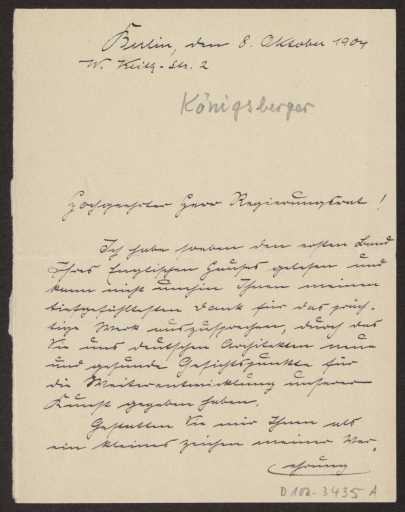 Berlin, den 8. Oktober 1904
W. Keith-Str. 2
Königsberger
Hochgeehrter Herr Regierungsrat!
Ich habe soeben den ersten Band
Ihres Englischen Hauses gelesen und
kann nicht umhin Ihnen meinen
tiefgefühltesten Dank für das präch-
tige Werk auszusprechen, durch das
Sie uns deutschen Architekten neue
und gesunde Gesichtspunkte für
die Weiterentwicklung unserer
Kunst gegeben haben.
Gestatten Sie mir Ihnen als
ein kleines Zeichen meiner Ver-
ehrung
D 102-3435 A